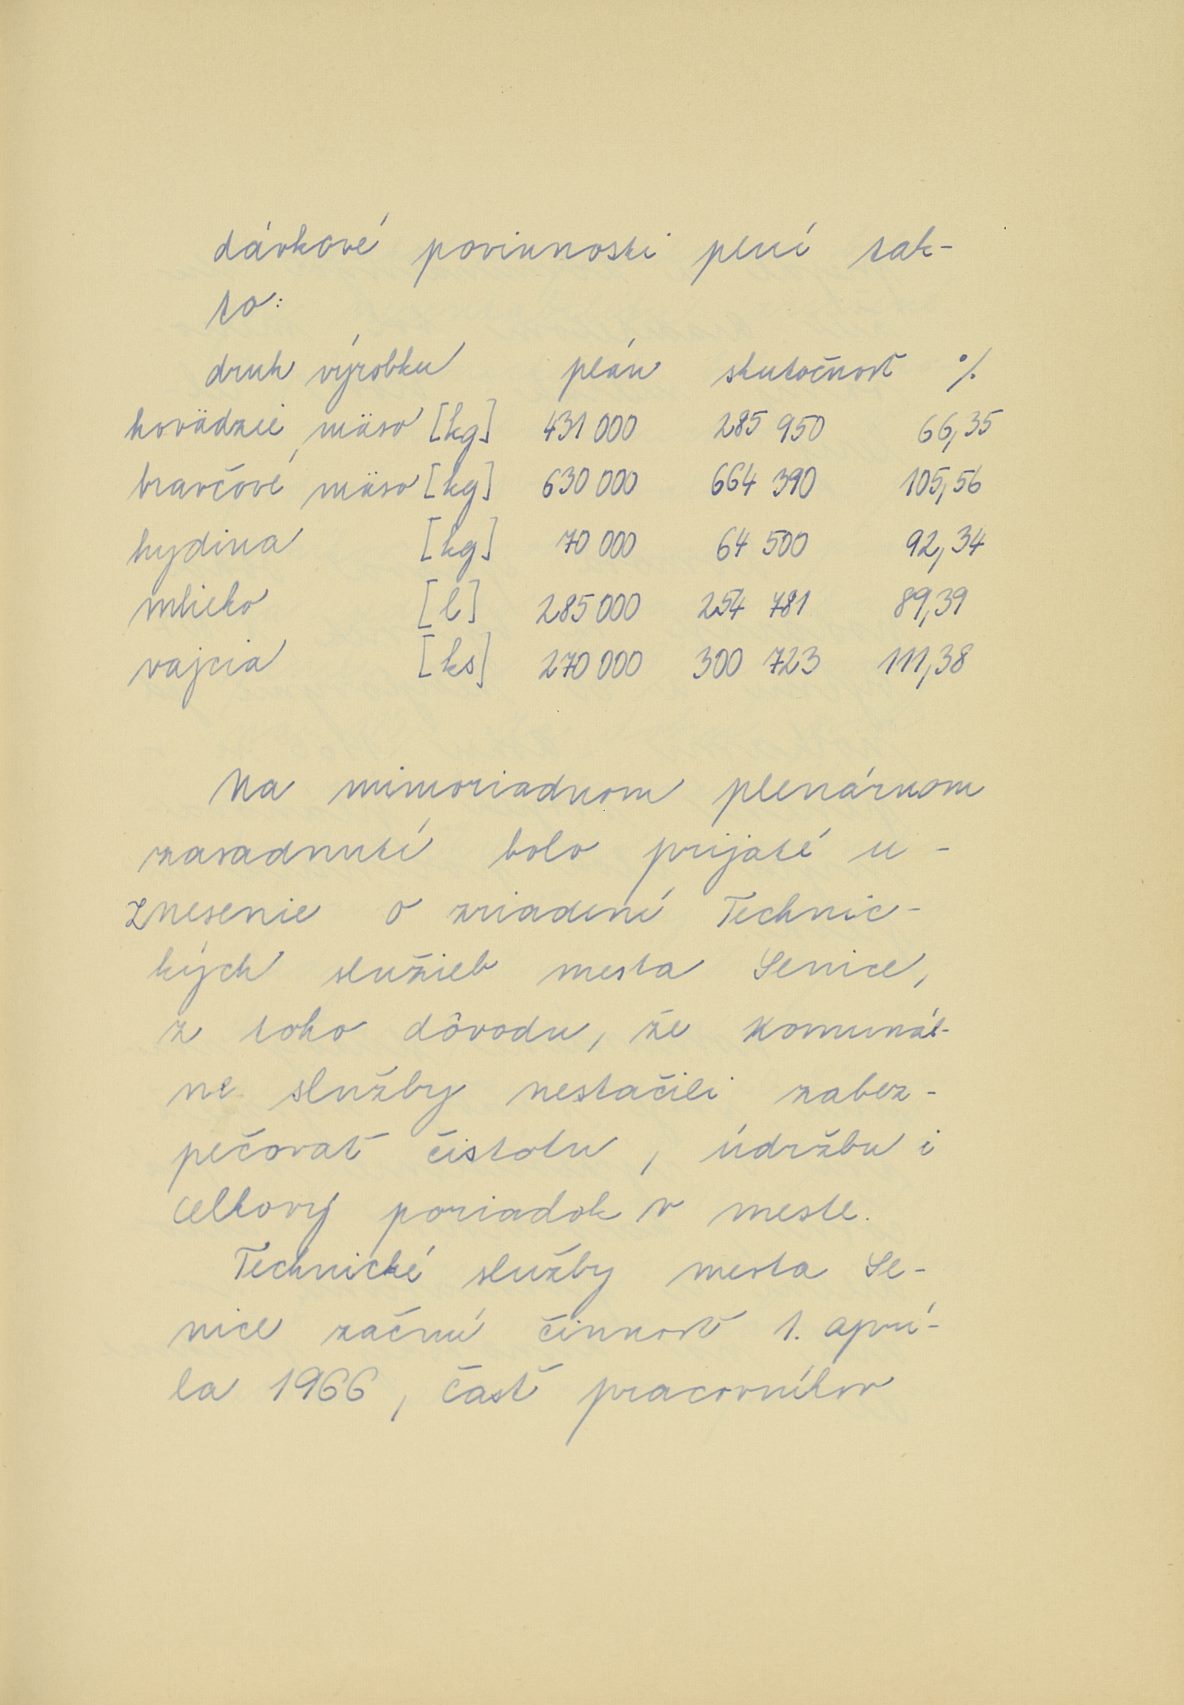 dávkové povinnosti plní tak-
to:
druh výrobku plán skutočnosť %
hovädzie mäso [kg] 431 000 285 950 66,35
bravčové mäso [kg] 630 000 664 390 105,56
hydina [kg] 70 000 64 500 92,34
mlieko [l] 285 000 254 781 89,39
vajcia [ks] 270 000 300 723 111,38
Na mimoriadnom plenárnom
zasadnutí bolo prijaté u-
znesenie o zriadení Technic-
kých služieb mesta Senice,
z toho dôvodu, že komunál-
ne služby nestačili zabez-
pečovať čistotu, údržbu i
celkový poriadok v meste.
Technické služby mesta Se-
nice začnú činnosť 1. aprí-
la 1966, časť pracovníkov